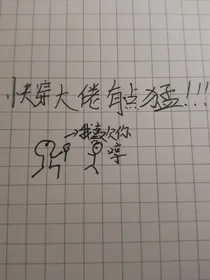 快穿大佬有点猛!!!
→我喜欢你
哼